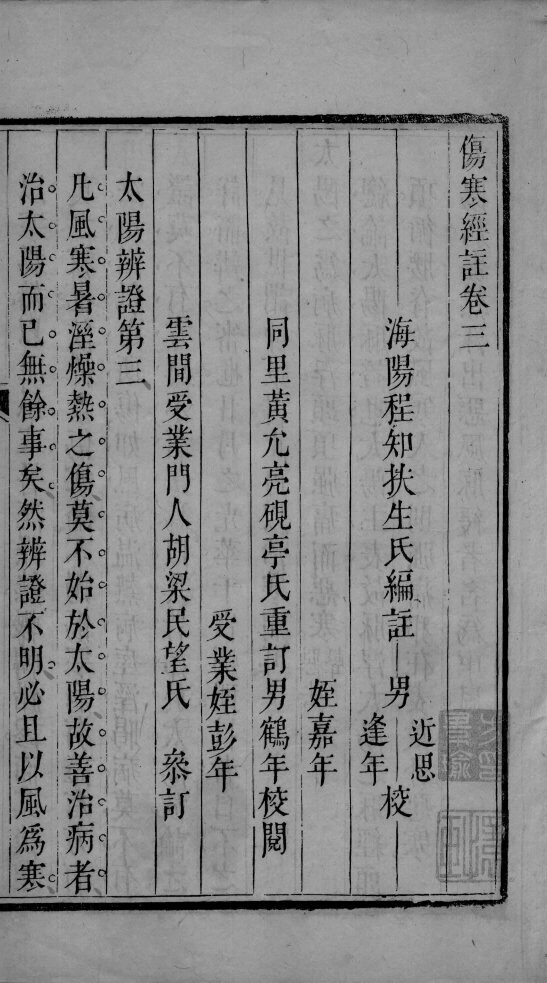 傷寒經註卷三
海陽程知扶生氏編註 男 近思 逢年 校
姪嘉年
同里黃允亮硯亭氏重訂男鶴年校閱
受業姪彭年
雲間受業門人胡梁民望氏 叅訂
太陽辨證第三
凡風寒暑溼燥熱之傷莫不始於太陽故善治病者
治太陽而已無餘事矣然辨證不明必且以風爲寒